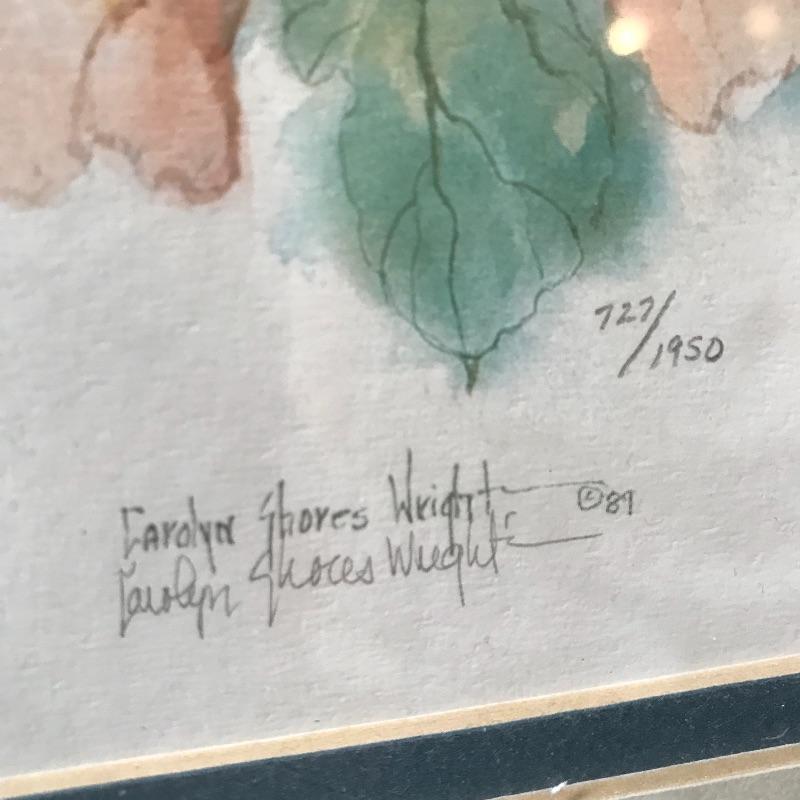 727/
1950
Carolyn Shores Wright ©89
Carolyn Shores Wright